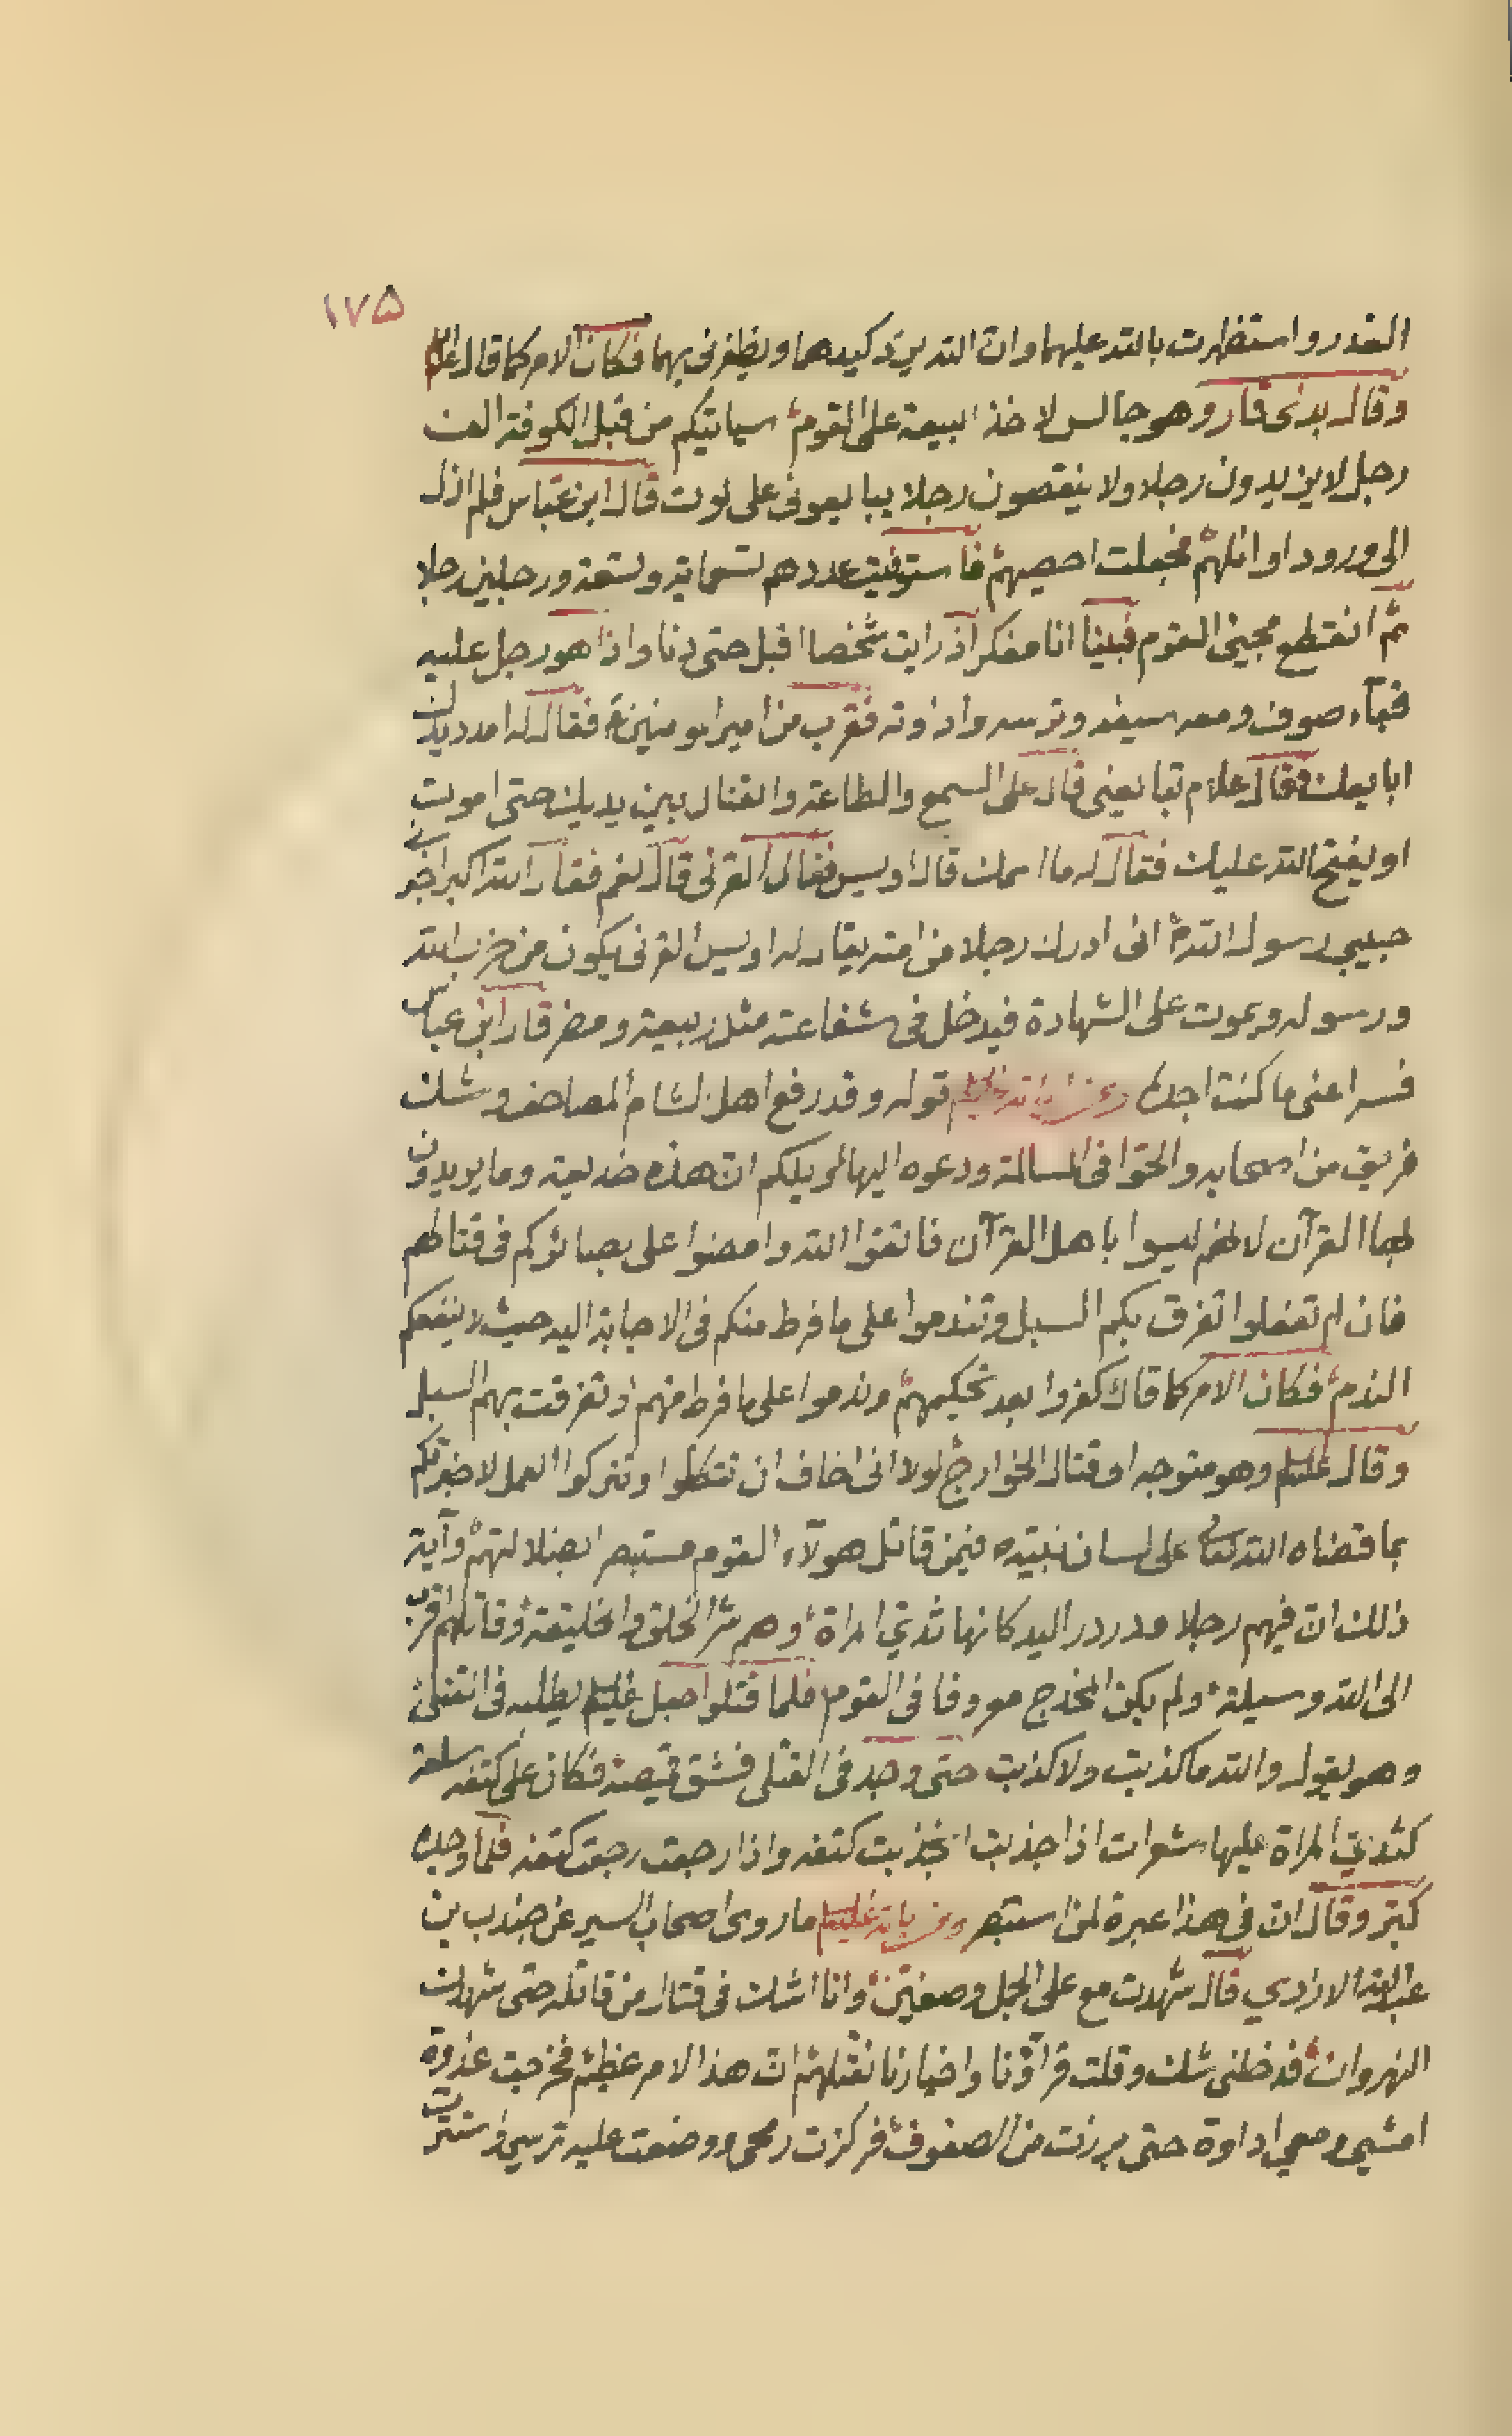 ١٧٥
الغدر واستظهرت بالله عليهما وان الله يرد كيدهما ويظفرنى بهما فكان الامر كما قال
وقال بذى قار وهو جالس لاخذ البيعة على القوم سياتيكم من قبل الكوفة الف
رجل لا يزيدون رجلا ولا ينقصون رجلا يبايعونى على الموت قال ابن عباس فلم ازل
الى ورود اوائلهم فجعلت احصيهم فاستوفيت عددهم تسعماية وتسعة وتسعين رجلا
ثم انقطع مجيئ القوم فبينا انا مفكر اذ رايت شخصا اقبل حتى دنا واذا هو رجل عليه
قباء صوف ومعه سيفه وترسه واذوته فقرب من امير المومنين فقال له امدد يدك
ابايعك فقال علام تبايعنى قال على السمع والطاعة والقتال بين يديك حتى اموت
او يفتح الله عليك فقال له ما اسمك قال اويس فقال القرنى قال نعم فقال الله اكبر اخبرنى
حبيبي رسول الله انى ادرك رجلا من امته يقال له اويس القرنى يكون من حزب الله
ورسوله ويموت على الشهادة فيدخل فى شفاعته مثل ربيعة ومضر قال ابن عباس
فسرا عنى ما كنت اجد قوله وقد رفع اهل الشام المصاحف وشك
فريق من اصحابه والحوا فى المسالمة ودعوه اليها لويلكم ان هذه خديعة وما يريدون
لهما القرآن لانهم ليسوا باهل القرآن فاتقوا الله وامضوا على بصائركم فى قتالهم
فان لم تفعلوا تفرق بكم السبل وتندموا على ما فرط منكم فى الاجابة اليه حيث لا ينفعكم
الندم فكان الامر كما قال كفروا بعد تحكيمهم وندموا على ما فرط منهم وتفرقت بهم السبل
وقال عليه السلم وهو متوجه او قتال الخوارج لولا انى اخاف ان تتكلوا وتتركوا العمل لاخبرتكم
بما قضاه الله تعالى على لسان نبيه فيمن قاتل هولآء القوم مستبصرا بضلالتهم وآية
ذلك ان فيهم رجلا مدردر اليد كانها ثدي امراة وهم شر الخلق والخليقة وقاتلهم اقرب
الى الله وسيلة ولم يكن المخدج معروفا فى القوم فلما قتلوا جعل عليه السلم يطلبه فى القتلى
وهو يقول والله ما كذبت ولا كذبت حتى وجد فى القتلى فشق قميصه فكان على كتفه سلعة
كثدي المراة عليها شعرات اذا جذبت انجذبت كتفه واذا رجعت رجعت كتفه فلما وجده
كبّر وقال ان فى هذا عبرة لمن استبصر ومن آياته عليه السلم ما روى اصحاب السير عن جندب بن
عبد الله الازدي قال شهدت مع على الجمل وصفين وانا اشك فى قتال من قاتله حتى شهدت
النهروان فدخلنى شك وقلت قراؤنا واخيارنا نقتلهم ان هذا الامر عظيم فخرجت غدوة
امشي ومعي اداوة حتى برزت من الصفوف فركزت رمحى ووضعت عليه ترسي واستترت